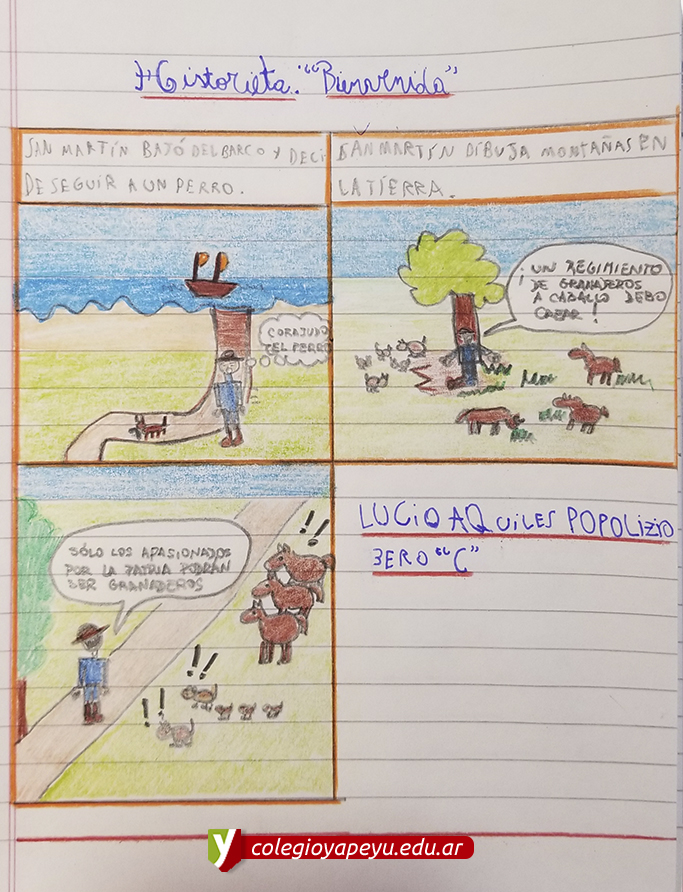 Historieta. "Bienvenida"
SAN MARTÍN BAJÓ DEL BARCO Y DECI
DE SEGUIR A UN PERRO.
SAN MARTÍN DIBUJA MONTAÑAS EN
LA TIERRA.
CORAJUDO
EL PERRO
¡UN REGIMIENTO
DE GRANADEROS
A CABALLO DEBO
CREAR!
SÓLO LOS APASIONADOS
POR LA PATRIA PODRÁN
SER GRANADEROS
!!
!!
!!
LUCIO AQUILES POPOLIZIO
3ERO "C"
y colegioyapeyu.edu.ar